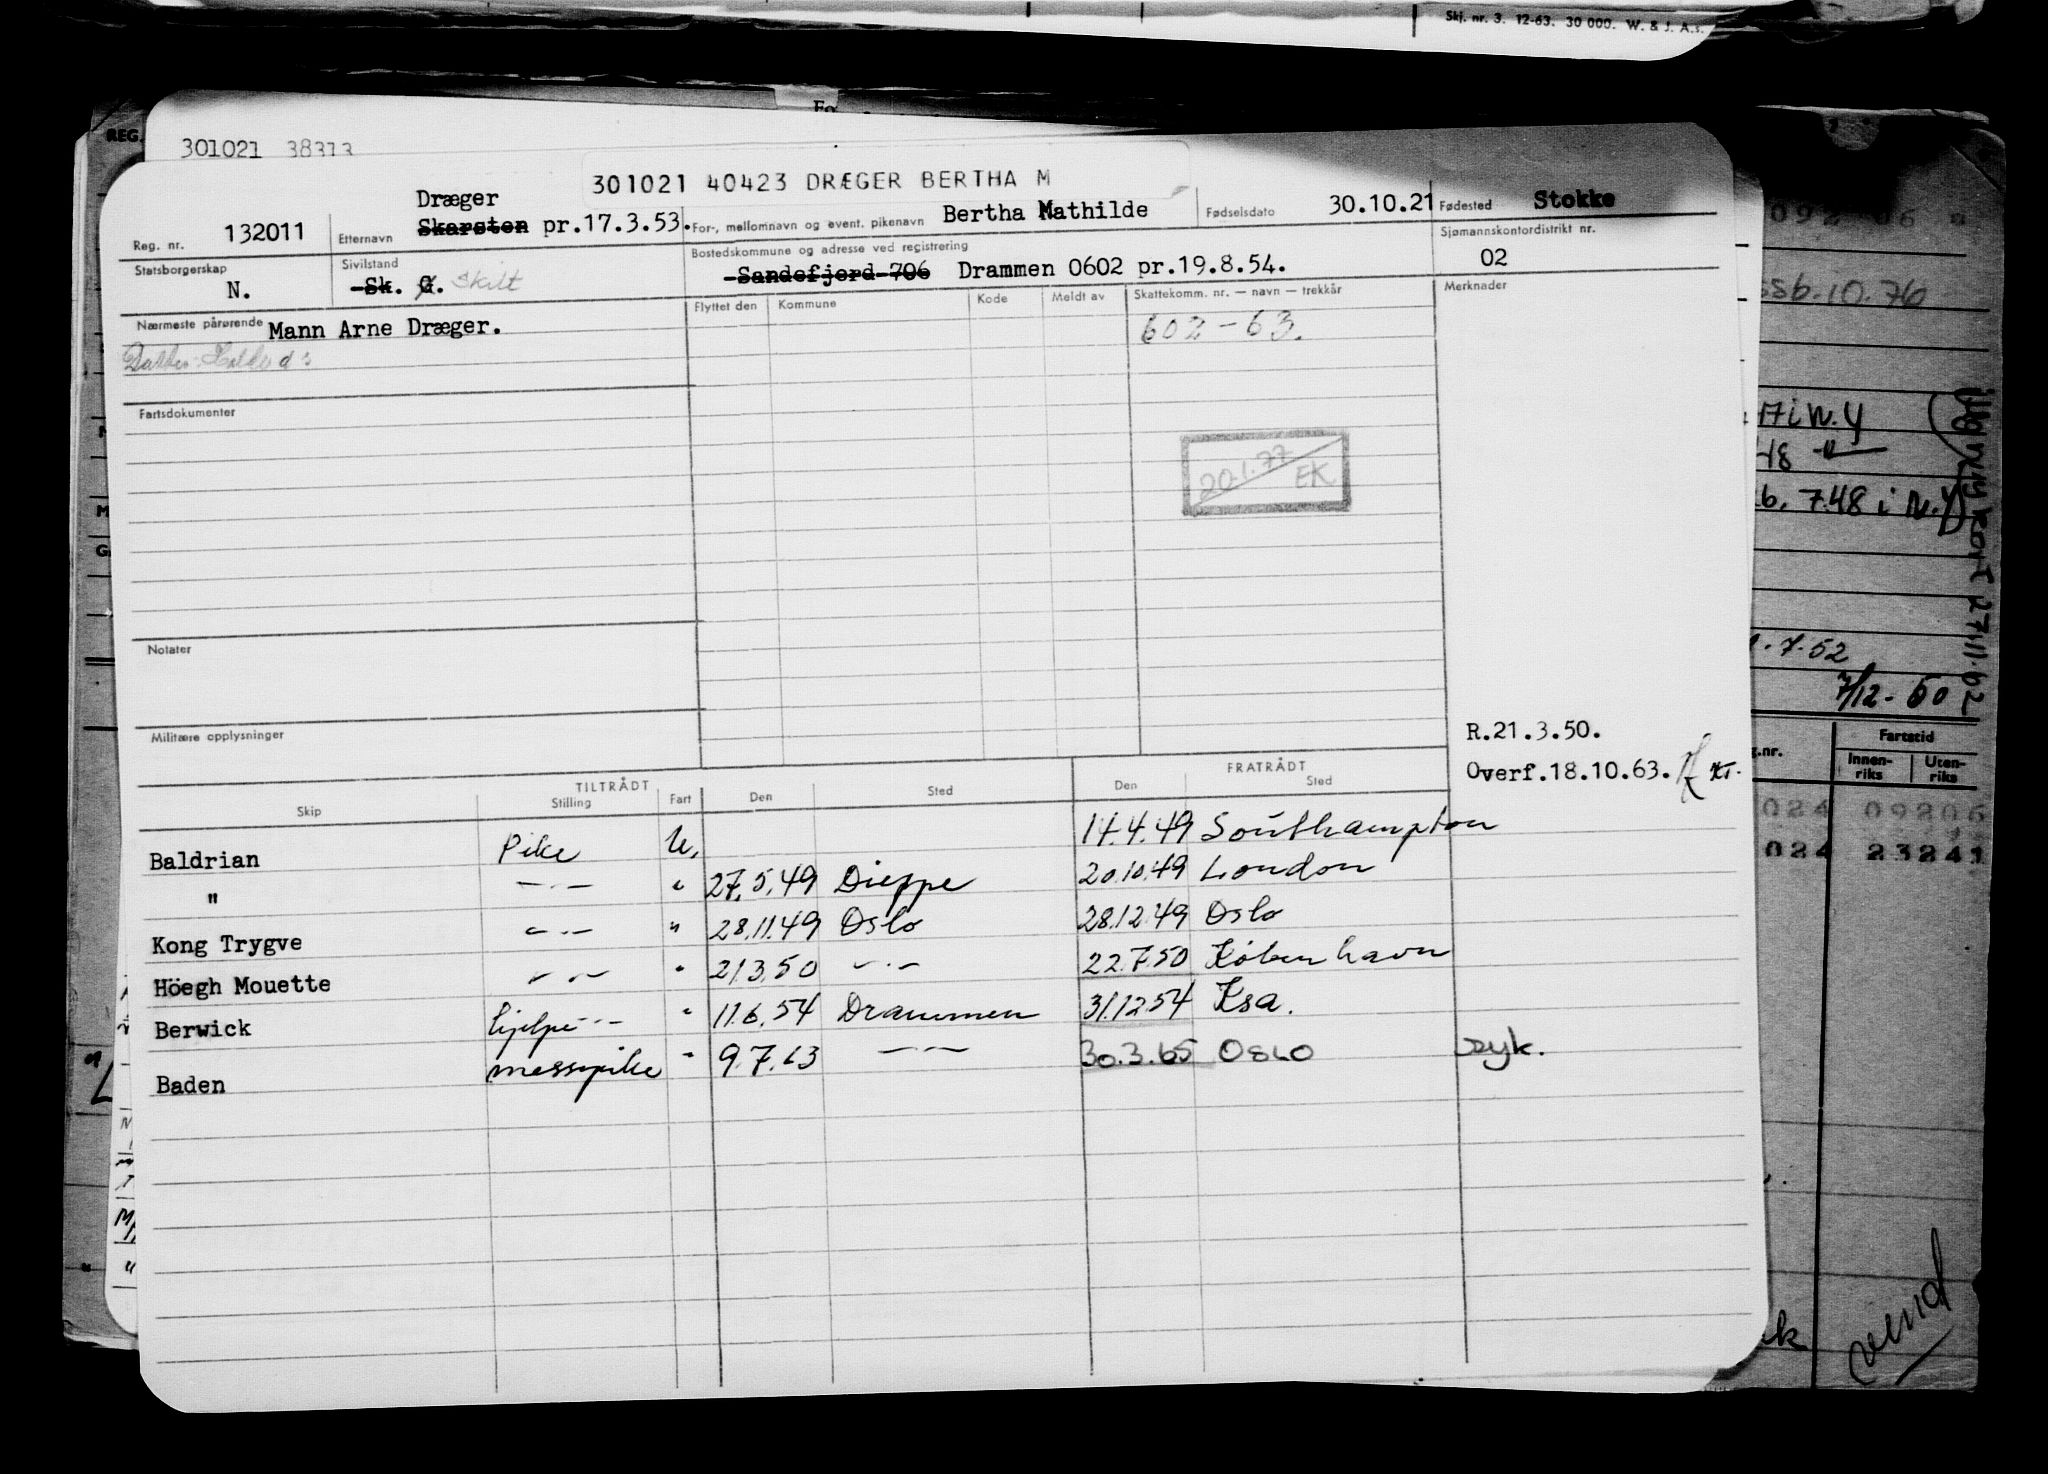 Skj. nr. 3. 12-63. 30 000. W. & J. A.s.
REG.
301021 38313
301021 40423 DRÆGER BERTHA M
Dræger
Reg. nr. 132011
Etternavn Skarsten pr.17.3.53.
For-, mellomnavn og event. pikenavn Bertha Mathilde
Fødselsdato 30.10.21
Fødested Stokke
Statsborgerskap N.
Sivilstand Sk. G. Skilt
Bostedskommune og adresse ved registrering
Sandefjord 706 Drammen 0602 pr.19.8.54.
Sjømannskontordistrikt nr.
02
Nærmeste pårørende Mann Arne Dræger.
Flyttet den Kommune Kode Meldt av Skattekomm. nr. — navn — trekkår
Merknader
602-63.
Fartsdokumenter
20.1.77 EK
Notater
Militære opplysninger
R.21.3.50.
Overf.18.10.63.
TILTRÅDT FRATRÅDT
Skip Stilling Fart Den Sted Den Sted
Baldrian Pike U. 14.4.49 Southampton
" —·— " 27.5.49 Dieppe 20.10.49 London
Kong Trygve —·— " 28.11.49 Oslo 28.12.49 Oslo
Höegh Mouette —·— " 21.3.50 —·— 22.7.50 København
Berwick hjelpe —·— " 11.6.54 Drammen 31.12.54 Ksa.
Baden messepike " 9.7.63 —·— 30.3.65 OSLO syk.
ssb.10.76
17 i N.Y
48
7.48 i N.Y
7.52
7/12-50
g.nr. Fartstid
Innen-riks Uten-riks
024 09206
024 23241
vend